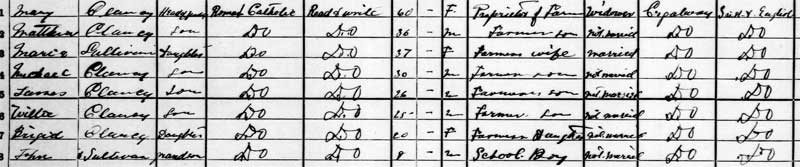 1 Mary Clancy Head of family Roman Catholic Read & write 60 - F Proprietor of Farm Widower Co galway Irish & English
2 Matthew Clancy Son Do Do 36 - M Farmer son not married Do Do
3 Maria Sullivan Daughter Do Do 37 - F Farmers wife married Do Do
4 Michael Clancy Son Do Do 30 - M Farmer son not married Do Do
5 James Clancy Son Do Do 26 - M Farmers son not married Do Do
6 Willie Clancy Son Do Do 25 - M Farmer son not married Do Do
7 Brigid Clancy Daughter Do Do 20 - F Farmer Daughter not married Do Do
8 John Sullivan grandson Do Do 8 - M School Boy not married Do Do